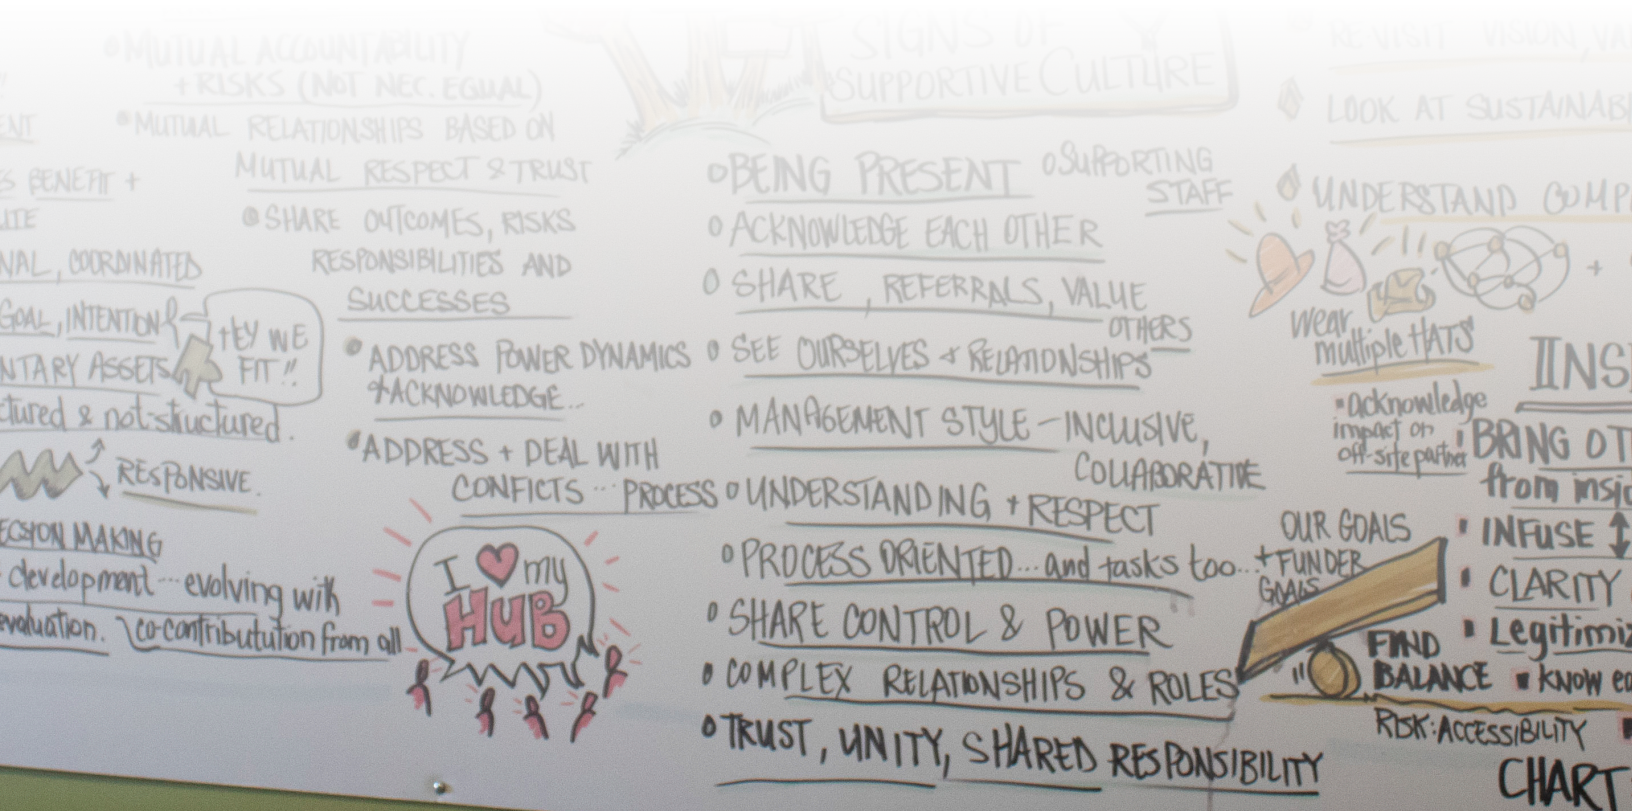 MUTUAL ACCOUNTABILITY
+ RISKS (NOT NEC. EQUAL)
MUTUAL RELATIONSHIPS BASED ON
MUTUAL RESPECT & TRUST
SHARE OUTCOMES, RISKS
RESPONSIBILITIES AND
SUCCESSES
ADDRESS POWER DYNAMICS
+ ACKNOWLEDGE...
ADDRESS + DEAL WITH
CONFICTS... PROCESS
BENEFIT +
COORDINATED
GOAL, INTENTION
ASSETS
& not-structured.
tEY WE
FIT!!
RESPONSIVE.
MAKING
development... evolving with
evaluation. co-contributution from all
I ♥ my
HUB
SIGNS OF
SUPPORTIVE CULTURE
BEING PRESENT
SUPPORTING
STAFF
ACKNOWLEDGE EACH OTHER
SHARE, REFERRALS, VALUE
OTHERS
SEE OURSELVES + RELATIONSHIPS
MANAGEMENT STYLE - INCLUSIVE,
COLLABORATIVE
UNDERSTANDING + RESPECT
PROCESS ORIENTED... and tasks too...
SHARE CONTROL & POWER
COMPLEX RELATIONSHIPS & ROLES
TRUST, UNITY, SHARED RESPONSIBILITY
RE-VISIT VISION,
LOOK AT
UNDERSTAND
+
wear
multiple HATS
acknowledge
impact on
off-site partner
OUR GOALS
+ FUNDER
GOALS
FIND
BALANCE
RISK: ACCESSIBILITY
BRING
from
INFUSE
CLARITY
know
CHART